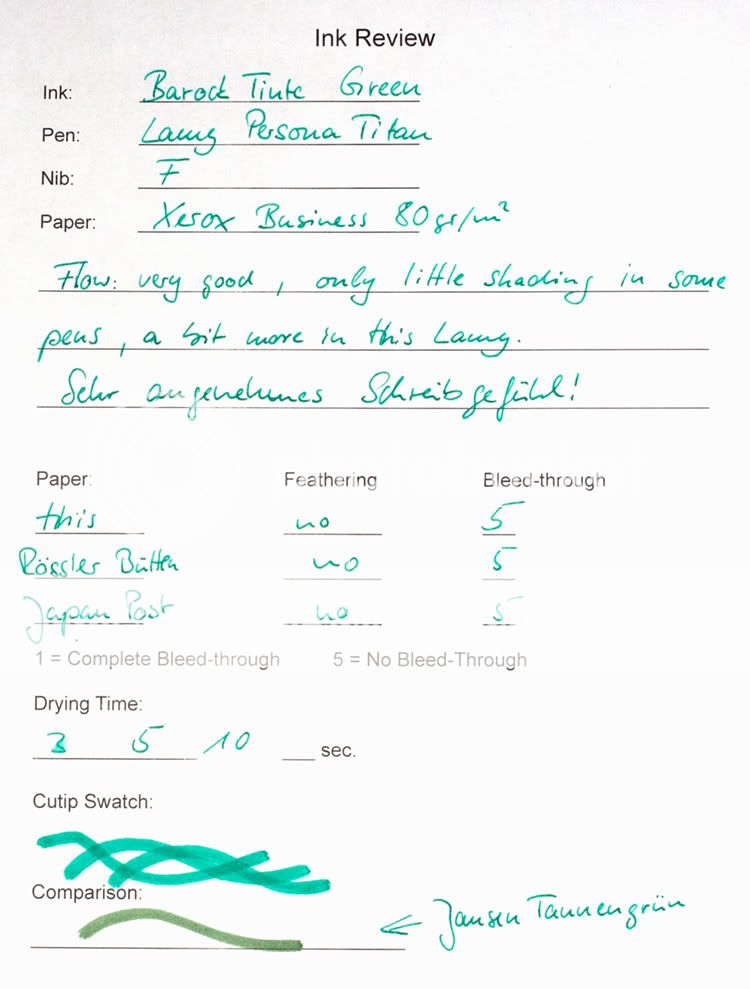 Ink Review
Ink: Barock Tinte Green
Pen: Lamy Persona Titan
Nib: F
Paper: Xerox Business 80gr/m²
Flow: very good, only little shading in some
pens, a bit more in this Lamy.
Sehr angenehmes Schreibgefühl!
Paper: Feathering Bleed-through
this no 5
Rössler Bütten no 5
Japan Post no 5
1 = Complete Bleed-through 5 = No Bleed-Through
Drying Time:
3 5 10 sec.
Cutip Swatch:
Comparison:
← Jansen Tannengrün